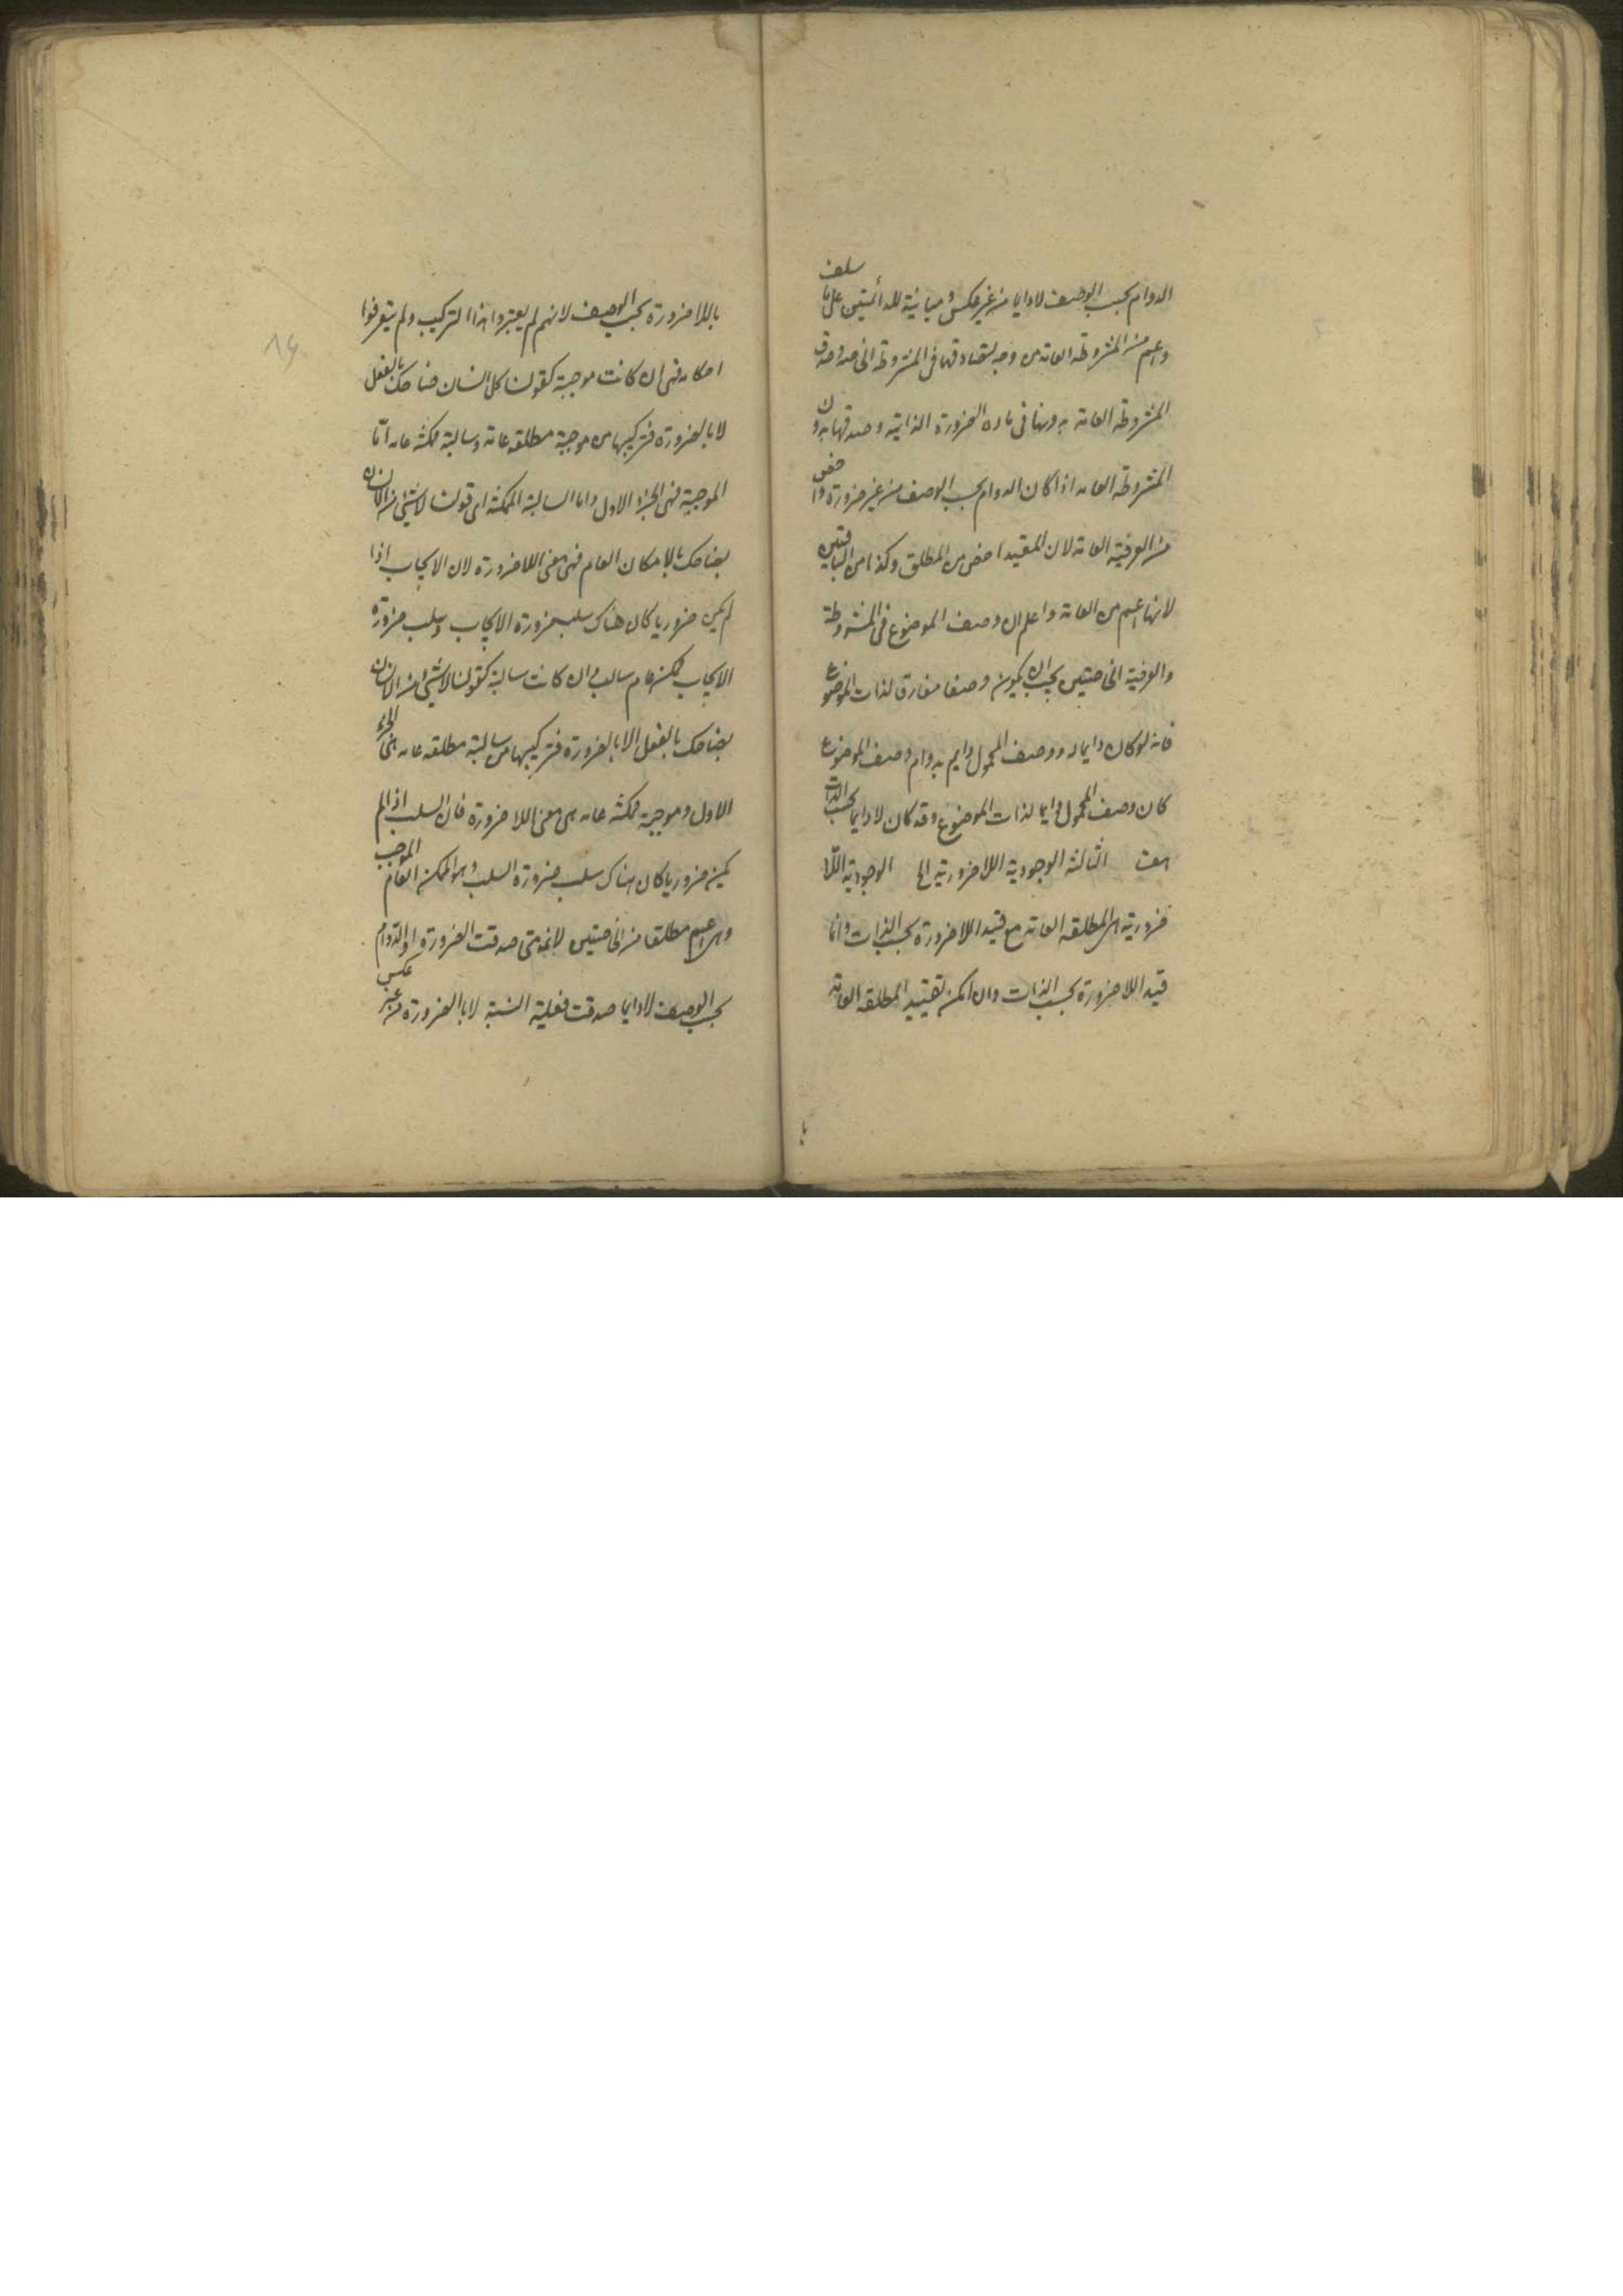 الدوام بحسب الوصف لادايما من غير عكس ومباينة للدائمتين على ما سلف
واعم من المشروطة العامة من وجه لتصادقهما فى المشروطة الخاصة وصدق
المشروطة العامة بدونها فى مادة الضرورة الذاتية وصدقها بدون
المشروطة العامه اذا كان الدوام بحسب الوصف من غير ضرورة واخص
من العرفية العامة لان المقيد اخص من المطلق وكذا من الباقيتين
لانها اعم من العامة واعلم ان وصف الموضوع فى المشروطة
والعرفية الخاصتين يجب ان يكون وصفا مفارقا لذات الموضوع
فانه لو كان دايما له ووصف المحمول دايم بدوام وصف الموضوع
كان وصف المحمول دايما لذات الموضوع وقد كان لادايما بحسب الذات
هف الثالثة الوجودية اللاضرورية الخ الوجودية اللا
ضرورية هى المطلقه العامة مع قيد اللاضرورة بحسب الذات وانما
قيد اللاضرورة بحسب الذات وان امكن تقييد المطلقه العامة
باللاضرورة بحسب الوصف لانهم لم يعتبروا هذا التركيب ولم يتعرفوا
احكامه فهى ان كانت موجبة كقولنا كل انسان ضاحك بالفعل
لا بالضرورة فتركيبها من موجبة مطلقه عامة وسالبة ممكنة عامه اما
الموجبة فهى الجزء الاول واما السالبة الممكنة اى قولنا لاشئ من الانسان
بضاحك بالامكان العام فهى معنى اللاضرورة لان الايجاب اذا
لم يكن ضروريا كان هناك سلب ضرورة الايجاب وسلب ضرورة
الايجاب ممكن عام سالب وان كانت سالبة كقولنا لاشئ من الانسان
بضاحك بالفعل لا بالضرورة فتركيبها من سالبة مطلقه عامه هى الجزء
الاول وموجبة ممكنة عامه هى معنى اللاضرورة فان السلب اذا لم
يكن ضروريا كان هناك سلب ضرورة السلب وهو الممكن العام الموجب
وهى اعم مطلقا من الخاصتين لانه متى صدقت الضرورة او الدوام
بحسب الوصف لادايما صدقت فعلية النسبة لا بالضرورة من غير عكس